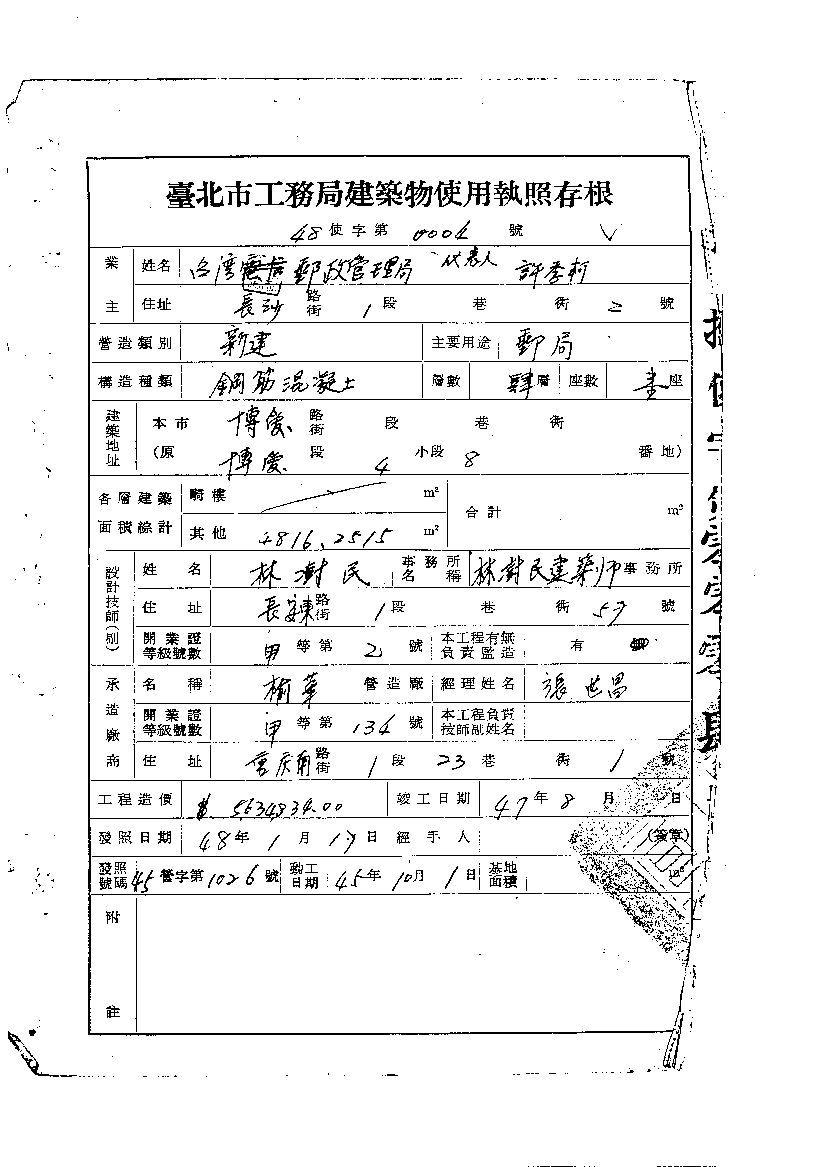 臺北市工務局建築物使用執照存根
48使字第0004號
業主 姓名 台湾郵政管理局 代表人 許季珂
住址 長沙路街1段 巷 衖 2 號
營造類別 新建 主要用途 郵局
構造種類 鋼筋混凝土 層數 肆層 座數 壹座
建築地址 本市 博愛路街 段 巷 衖
(原 博愛段 4 小段 8 番地)
各層建築面積總計 騎樓 m² 合計 m²
其他 4816.2515 m²
設計技師(別) 姓名 林澍民 事務所名稱 林澍民建築师事務所
住址 長安東路街1段 巷 衖 57 號
開業證等級號數 甲等第2號 本工程有無負責監造 有
承造廠商 名稱 榆華營造廠 經理姓名 張世昌
開業證等級號數 甲等第134號 本工程負責技師副姓名
住址 重庆南路街1段23巷 衖 1號
工程造價 $ 5634834.00 竣工日期 47年8月 日
發照日期 48年1月17日 經手人 (簽章)
發照號碼 45營字第1026號 動工日期 45年10月1日 基地面積 m²
附註